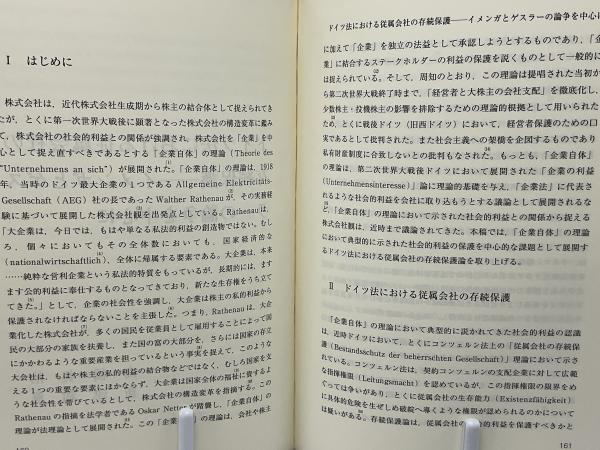 I はじめに
株式会社は、近代株式会社生成期から株主の結合体として捉えられてき
たが、とくに第一次世界大戦後に顕著となった株式会社の構造変革に鑑み
て、株式会社の社会的利益との関係が強調され、株式会社を「企業」を中
心として捉え直すべきであるとする「企業自体」の理論(Theorie des
"Unternehmens an sich")が展開された。「企業自体」の理論は、1918
年、当時のドイツ最大企業の1つであるAllgemeine Elektricitäts-
Gesellschaft (AEG) 社の長であったWalther Rathenauが、その実務経
験に基づいて展開した株式会社観を出発点としている。Rathenauは、
「大企業は、今日では、もはや単なる私法的利益の創造物ではない。むし
ろ、個々においてもその全体数においても、国家経済的な
(nationalwirtschaftlich)、全体に帰属する要素である。大企業は、本来
……純粋な営利企業という私法的特質をもっているが、長期的には、ます
ます公的利益に奉仕するものとなってきており、新たな生存権をもう立て
てきた。」として、企業の社会性を強調し、大企業は株主の私的利益から
保護されなければならないことを主張した。つまり、Rathenauは、大
業化した株式会社が、多くの国民を従業員として雇用することによって国
民の大部分の家族を扶養し、また国の富の大部分を、さらには国家の存立
にかかわるような重要産業を担っているという事実を捉えて、このような
大会社は、もはや株主の私的利益の結合物などでなく、むしろ国家を支
える1つの重要な要素にほかならず、大企業は国家全体の福祉に資するよ
うな社会性を帯びているとして、株式会社の構造変革を指摘する。この
Rathenauの指摘を法学者であるOskar Netterが踏襲し、「企業自体」の
理論が法理論として展開された。この「企業自体」の理論は、会社や株主
ドイツ法における従属会社の存続保護――イメンガとゲスラーの論争を中心に
に加えて「企業」を独立の法益として承認しようとするものであり、「企
業」に結合するステークホルダーの利益の保護を説くものとして一般的に
は捉えられている。そして、周知のとおり、この理論は提唱された当初か
ら第二次世界大戦終了時まで、「経営者と大株主の会社支配」を徹底化し、
少数株主・投機株主の影響を排除するための理論的根拠として用いられた
ため、とくに戦後ドイツ(旧西ドイツ)において、経営者保護のための口
実であるとして批判された。また社会主義への架橋を企図するものであり
私有財産制度に合致しないとの批判もなされた。もっとも、「企業自体」
の理論は、第二次世界大戦後ドイツにおいて展開された「企業の利益
(Unternehmensinteresse)」論に理論的基礎を与え、「企業法」に代表さ
れるような社会的利益を会社に取り込もうとする議論として展開されるな
ど、「企業自体」の理論において示された社会的利益との関係から捉える
株式会社観は、近時まで議論されてきた。本稿では、「企業自体」の理論
において典型的に示された社会的利益の保護を中心的な課題として展開す
るドイツ法における従属会社の存続保護の理論を取り上げる。
II ドイツ法における従属会社の存続保護
「企業自体」の理論において典型的に説かれてきた社会的利益の認識
は、近時ドイツにおいて、とくにコンツェルン法上の「従属会社の存続保
護(Bestandsschutz der beherrschten Gesellschaft)」理論において示さ
れている。コンツェルン法は、契約コンツェルンの支配企業に対して広範
な指揮権限(Leitungsmacht)を認めているが、この指揮権限の限界をめ
ぐっては争いがあり、とくに従属会社の生存能力(Existenzfähigkeit)
に具体的危険を生ぜしめ破綻へ導くような権限が認められるのかについて
は疑いがある。存続保護論は、従属会社の社会的利益を保護すべきかと
161